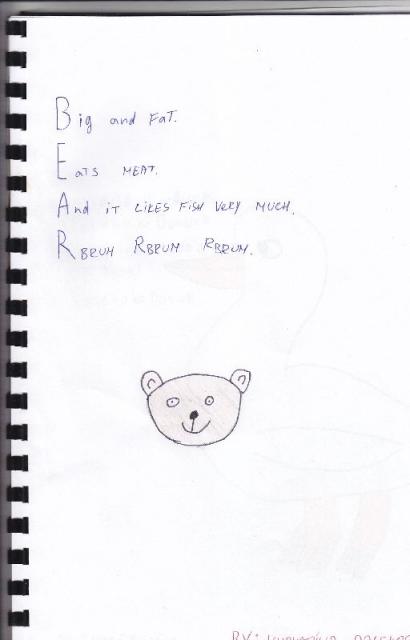 Big and FaT.
EaTS MEAT.
And iT LiKES FiSH VeRy MUCH.
RBRUM RBRUM RBRUM.
BY: